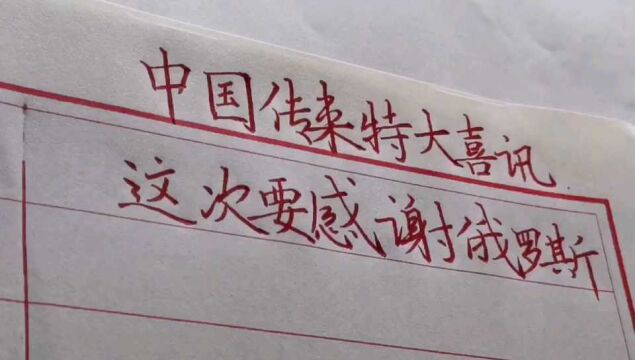 中国传来特大喜讯
这次要感谢俄罗斯